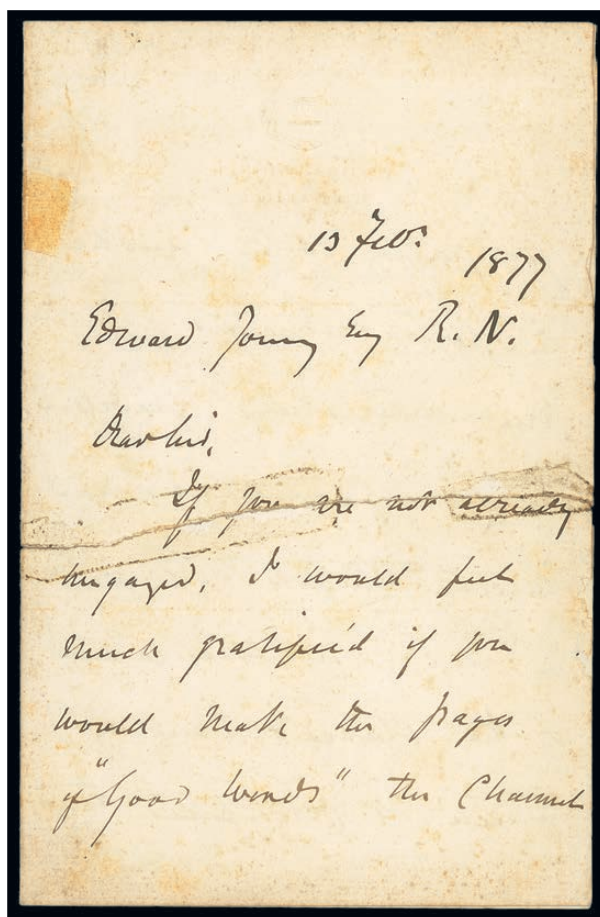 13 Feb: 1877
Edward Young Esq R. N.
Dear Sir,
If you are not already
engaged, I would feel
much gratified if you
would make the pages
of "Good Words" the Channel